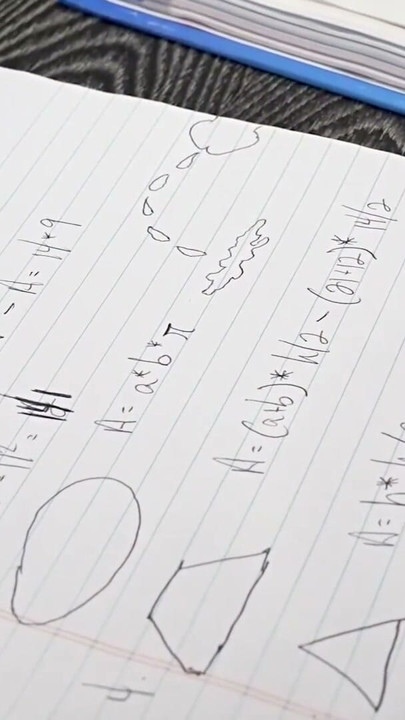 - A = 14*9
A = a*b*π
A = (a+b)*h/2 - (6+2)*4/2
A = h*
4